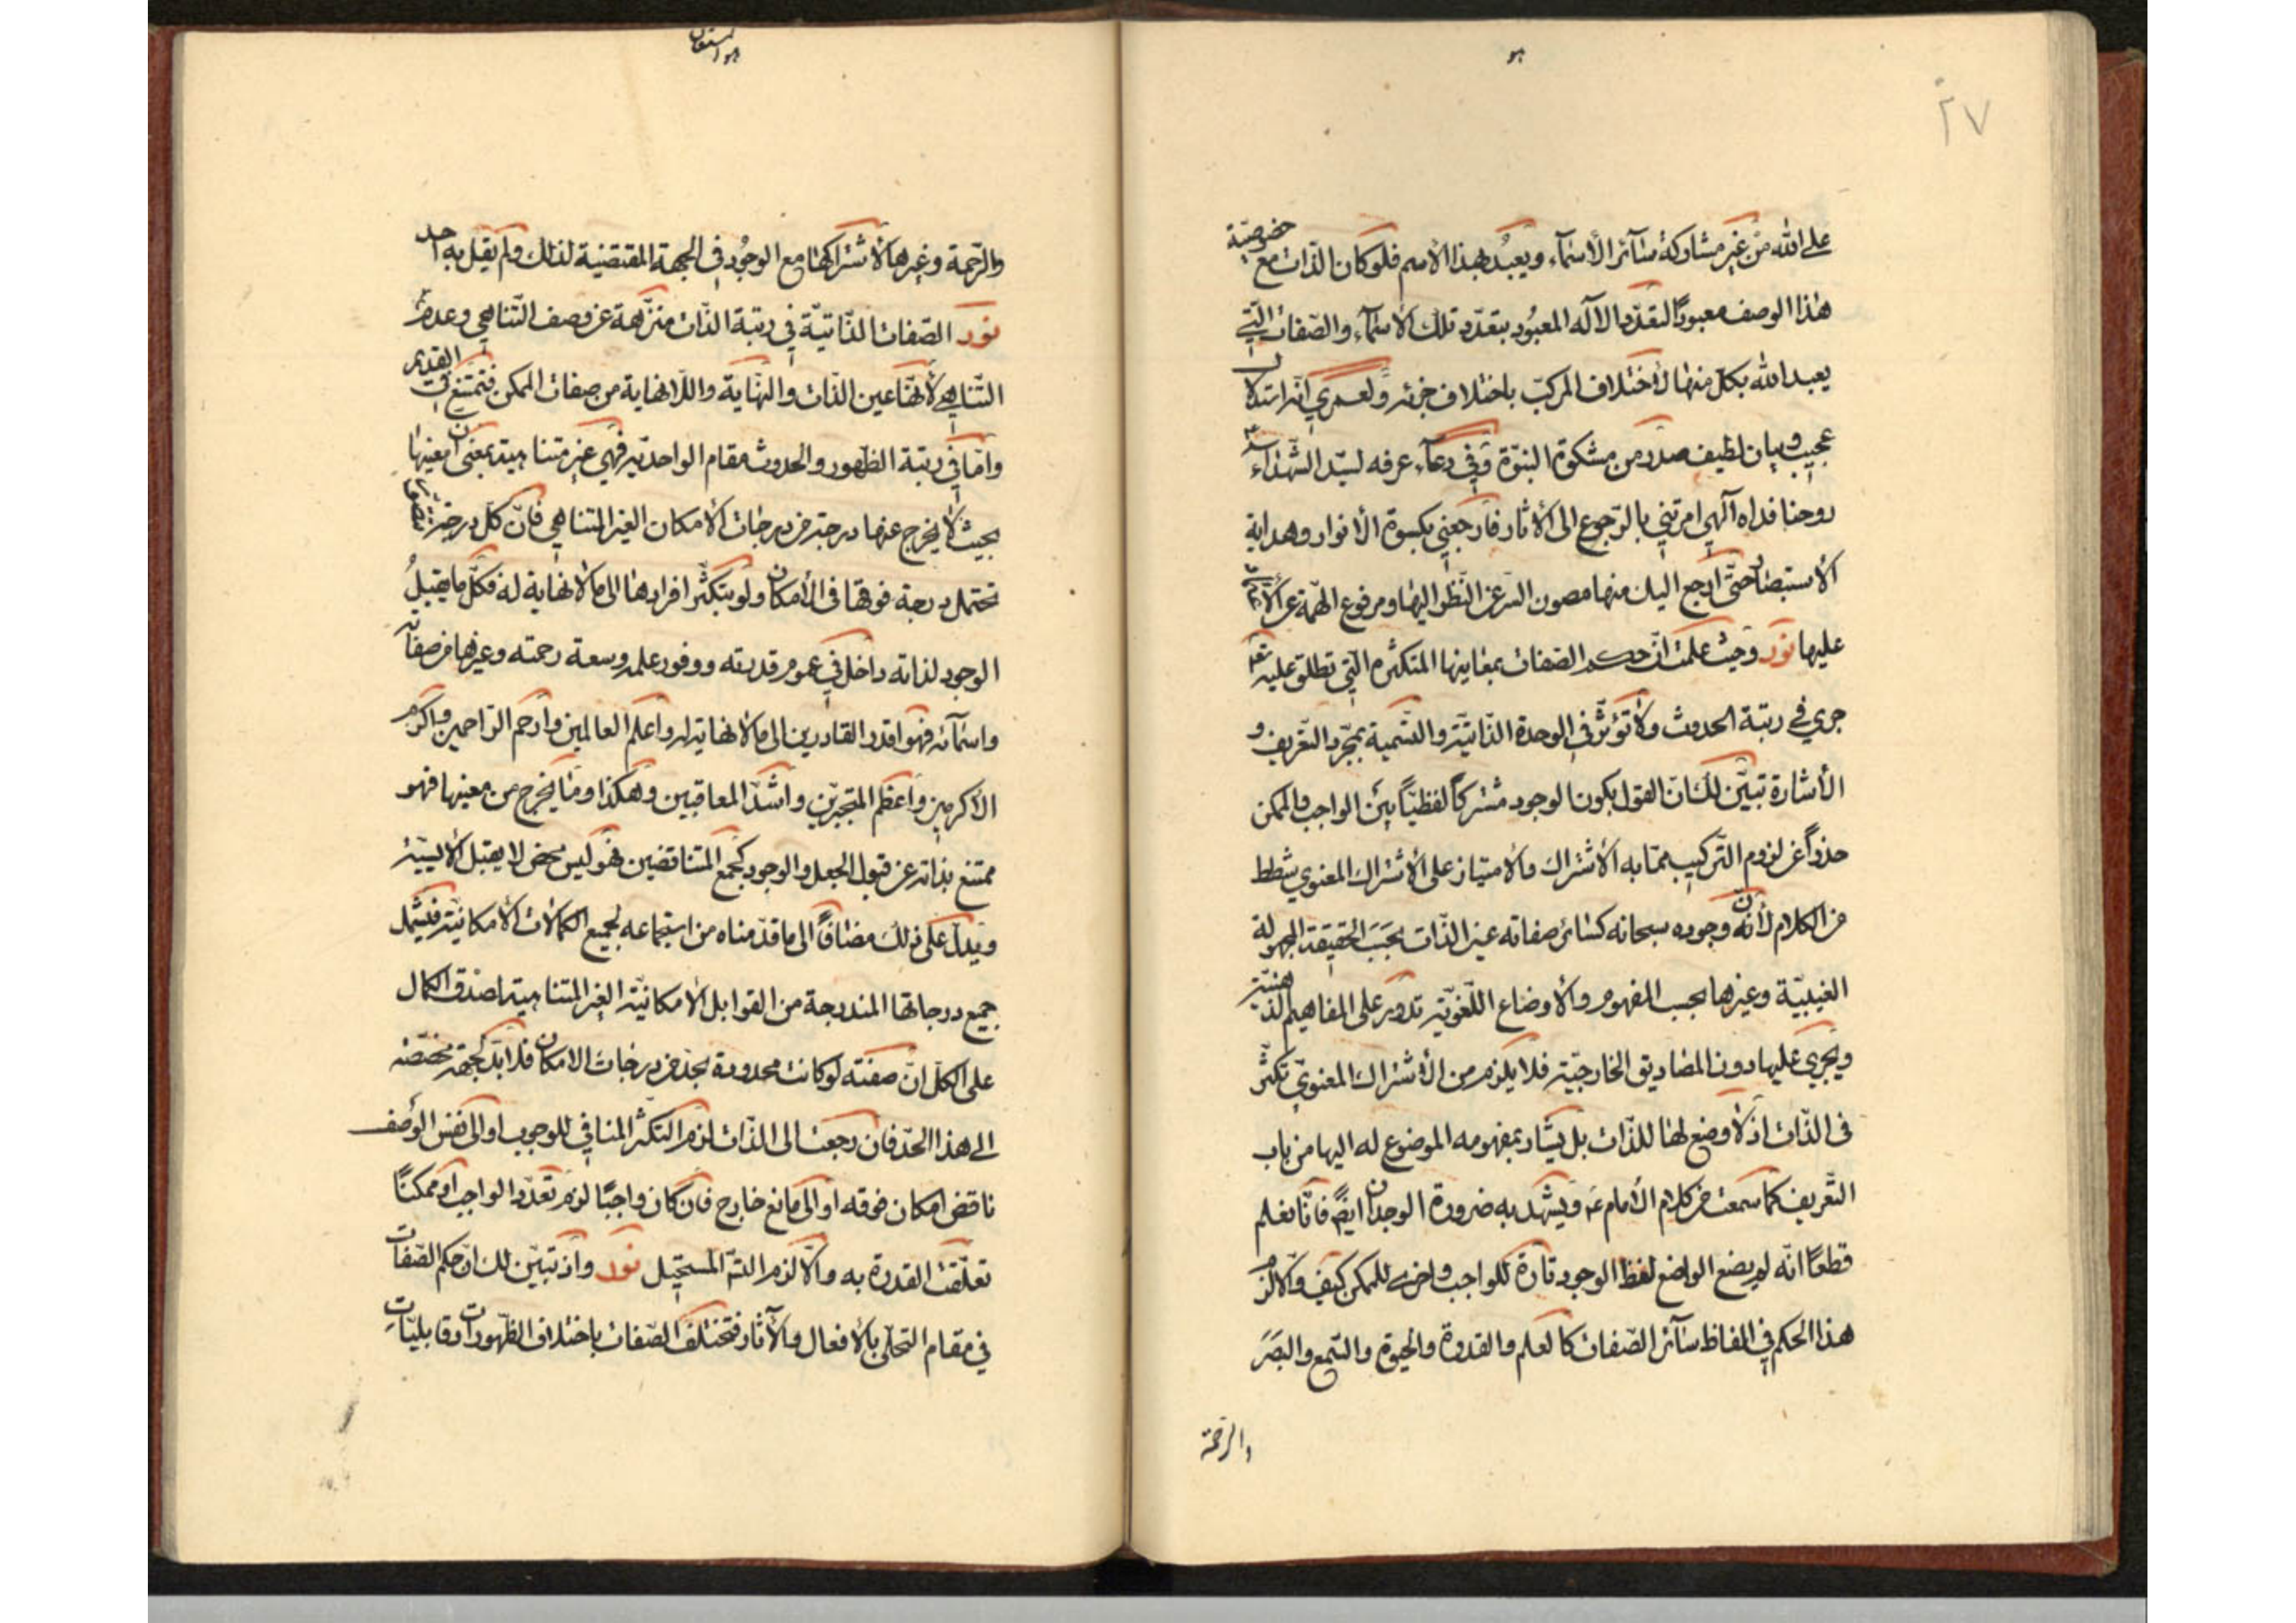 هو
٢٧
على الله من غير مشاركة سآئر الأسمآء ويعبد بهذا الاسم فلو كان الذات مع خصوصيّة
هذا الوصف معبودًا لتعدّد الآله المعبُود بتعدّد تلك الأسمآء والصّفات الّتي
يعبد الله بكل منها لاختلاف المركّب باختلاف جزئه ولعمري انّه استدلال
عجيب وبيان لطيف صدر من مشكوة النبوّة وفي دعآء عرفه لسيّد الشهداء
روحنا فداه آلهي امرتني بالرّجوع الى الأثار فارجعني بكسوة الأنوار وهداية
الأستبصار حتّى ارجع اليك منها مصون السّر عن النّظر اليها ومرفوع الهمّة عن الاعتماد
عليها نور وحيث علمت انّ حكم الصّفات بمعانيها المتكثّرة الّتي تطلق عليه تعالى
جرى في رتبة الحدوث ولا تؤثّر في الوحدة الذّاتيّة والتّسمية بمجرّد التّعريف و
الأشارة تبيّن لك انّ القول بكون الوجود مشتركًا لفظيّاً بين الواجب والممكن
حذراً عن لزوم التّركيب ممّا به الأشتراك والامتياز على الأشتراك المعنوي شطط
من الكلام لأنّ وجوده سبحانه كسائر صفاته عين الذّات بحَسَب الحقيقة المجهولة
الغيبيّة وغيرها بحسب المفهوم والأوضاع اللّغويّة تدور على المفاهيم الذّهنيّة
ويجري عليها دون المصاديق الخارجيّة فلا يلزم من الأشتراك المعنويّ تكثّر
في الذّات اذ لا وضع لها للذّات بل يشار بمفهومه الموضوع له اليها من باب
التّعريف كما سمعت من كلام الأمام ع ويشهد به ضرورة الوجدان ايضً فانّا نعلم
قطعًا انّه لم يضع الواضع لفظ الوجود تارة للواجب واخرى للممكن كيف والّا لزم
هذا الحكم في الفاظ سآئر الصّفات كالعلم والقدرة والحيوة والسّمع والبصَر
والرّحمة
هو المستعان
والرّحمة وغيرها لاشتراكها مع الوجُود في الجهة المقتضية لذلك ولم يقل به احد
نور الصّفات الذّاتيّة في رتبة الذّات منزّهة عن وصف التّناهي وعدم
التّناهي لأنّها عين الذّات والنّهاية واللّانهاية من صفات الممكن فتمتنع في القديم
وامّا في رتبة الظّهور والحدوث مقام الواحديّة فهي غير متناهية بمعنى
بحيث لا يخرج عنها درجة من درجات الأمكان الغير المتناهي فانّ كلّ درجة
تحتمل درجة فوقها في الأمكان ولو بتكثّر افرادها الى ما لا نهاية له فكلّ ما يقبلُ
الوجود لذاته داخل في عموم قدرته ووفور علمه وسعة رحمته وغيرها من صفاته
واسمآئه فهو اقدر القادرين الى ما لا نهاية له واعلم العالمين وارحم الرّاحمين واكرم
الأكرمين واعظم المتجبّرين واشدّ المعاقبين وهكذا وما يخرج من معينها فهو
ممتنع بذاته عن قبول الجعل والوجود كجمع المتناقضين فهو ليس محض لا يقبل الأيسيّة
ويدلّ على ذلك مضافًا الى ما قدّمناه من استجماعه لجميع الكمالات الأمكانيّة فيشمل
جميع درجاتها المندرجة من القوابل الأمكانيّة الغير المتناهية لصدق الكمال
على الكلّ انّ صفته لو كانت محدودة بحدّ من درجات الامكان فلا بدّ لجهة مخصّصة
الى هذا الحدّ فان رجعت الى الذّات لزم التكثّر المنافي للوجوب او الى نفس الوصف
ناقض امكان فوقه او الى مانع خارج فان كان واجبًا لزم تعدّد الواجب او ممكنًا
تعلّقت القدرة به والّا لزم المستحيل نور واذ تبيّن لك انّ حكم الصّفات
في مقام التجلّي بالأفعال والآثار فتختلف الصّفات باختلاف الظّهورات وقابليّات